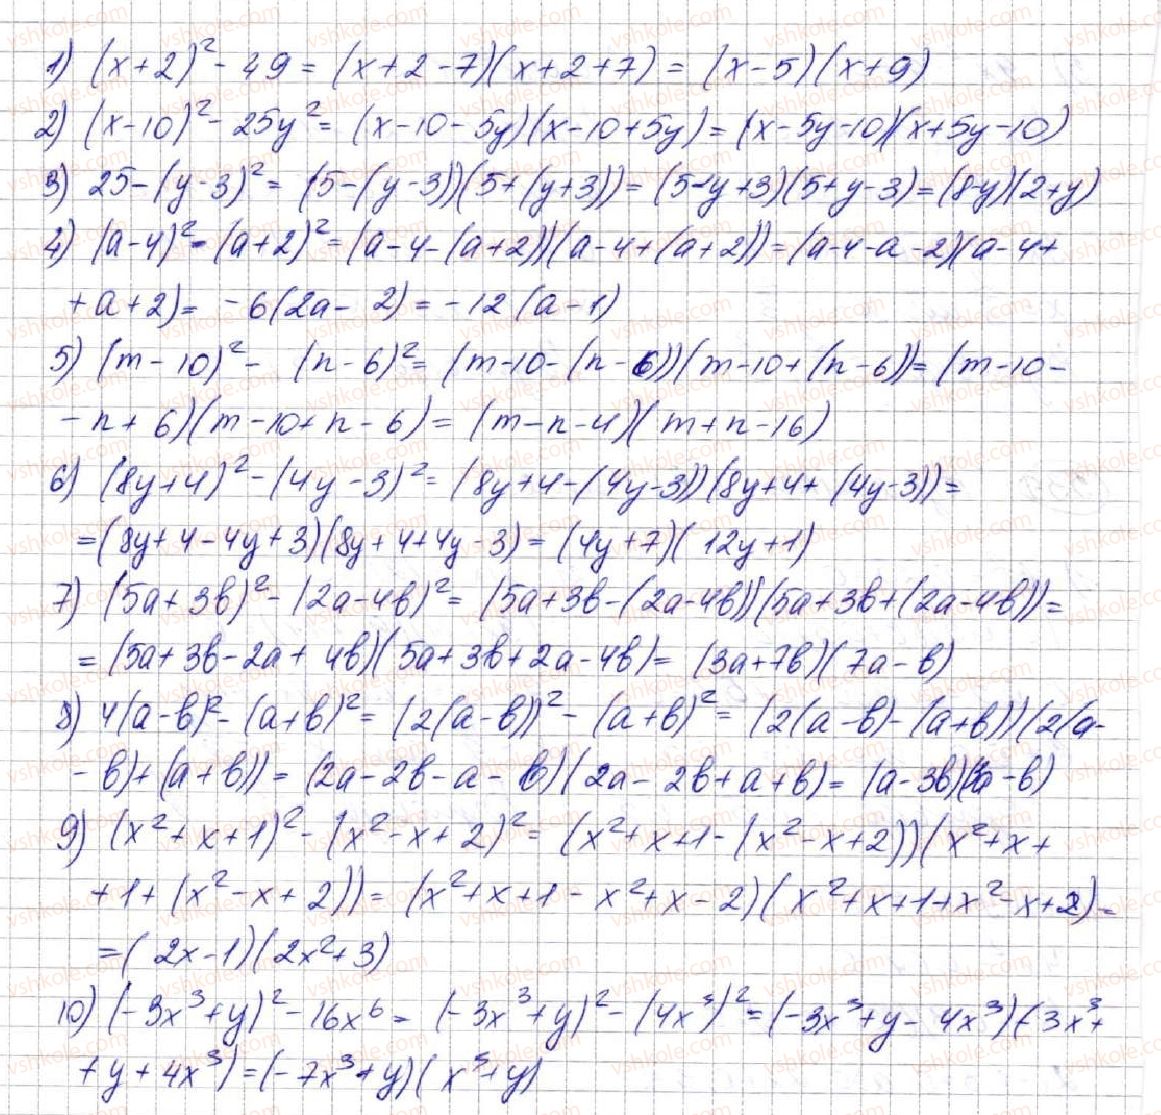 1) (x+2)² - 49 = (x+2-7)(x+2+7) = (x-5)(x+9)
2) (x-10)² - 25y² = (x-10-5y)(x-10+5y) = (x-5y-10)(x+5y-10)
3) 25-(y-3)² = (5-(y-3))(5+(y+3)) = (5-y+3)(5+y-3) = (8-y)(2+y)
4) (a-4)² - (a+2)² = (a-4-(a+2))(a-4+(a+2)) = (a-4-a-2)(a-4+
+a+2) = -6(2a-2) = -12(a-1)
5) (m-10)² - (n-6)² = (m-10-(n-6))(m-10+(n-6)) = (m-10-
-n+6)(m-10+n-6) = (m-n-4)(m+n-16)
6) (8y+4)² - (4y-3)² = (8y+4-(4y-3))(8y+4+(4y-3)) =
=(8y+4-4y+3)(8y+4+4y-3) = (4y+7)(12y+1)
7) (5a+3b)² - (2a-4b)² = (5a+3b-(2a-4b))(5a+3b+(2a-4b)) =
= (5a+3b-2a+4b)(5a+3b+2a-4b) = (3a+7b)(7a-b)
8) 4(a-b)² - (a+b)² = (2(a-b))² - (a+b)² = (2(a-b)-(a+b))(2(a-
-b)+(a+b)) = (2a-2b-a-b)(2a-2b+a+b) = (a-3b)(3a-b)
9) (x²+x+1)² - (x²-x+2)² = (x²+x+1-(x²-x+2))(x²+x+
+1+(x²-x+2)) = (x²+x+1-x²+x-2)(x²+x+1+x²-x+2) =
=(2x-1)(2x²+3)
10) (-3x³+y)² - 16x⁶ = (-3x³+y)² - (4x³)² = (-3x³+y-4x³)(-3x³+
+y+4x³) = (-7x³+y)(x³+y)